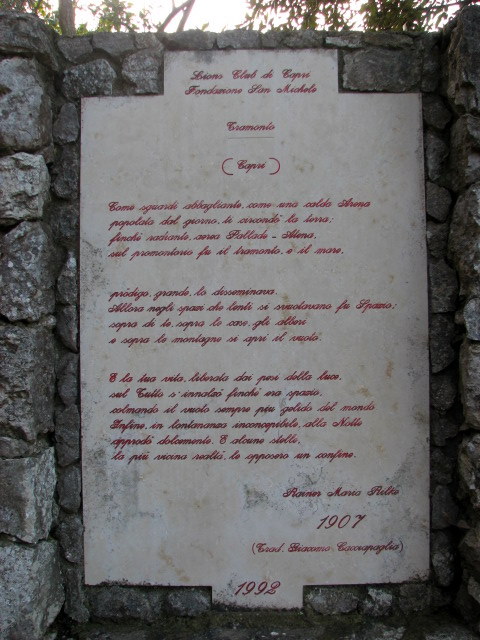 Lions Club di Capri
Fondazione San Michele
Tramonto
(Capri)
Come sguardi abbagliante, come una calda Arena
popolata dal giorno, ti circondò la terra;
finchè radiante, aerea Pallade-Atena,
sul promontorio fu il tramonto, e il mare,
pròdigo, grande, lo disseminava.
Allora negli spazi che lenti si svuotavano fu Spazio;
sopra di te, sopra le case, gli alberi
e sopra le montagne si aprì il vuoto.
E la tua vita, liberata dai pesi della luce,
sul Tutto s'innalzò finchè era spazio,
colmando il vuoto sempre più gelido del mondo
Infine, in lontananza inconcepibile, alla Notte
approdò dolcemente. E alcune stelle,
la più vicina realtà, le opposero un confine.
Rainer Maria Rilke
1907
(Trad. Giacomo Cacciapaglia)
1992